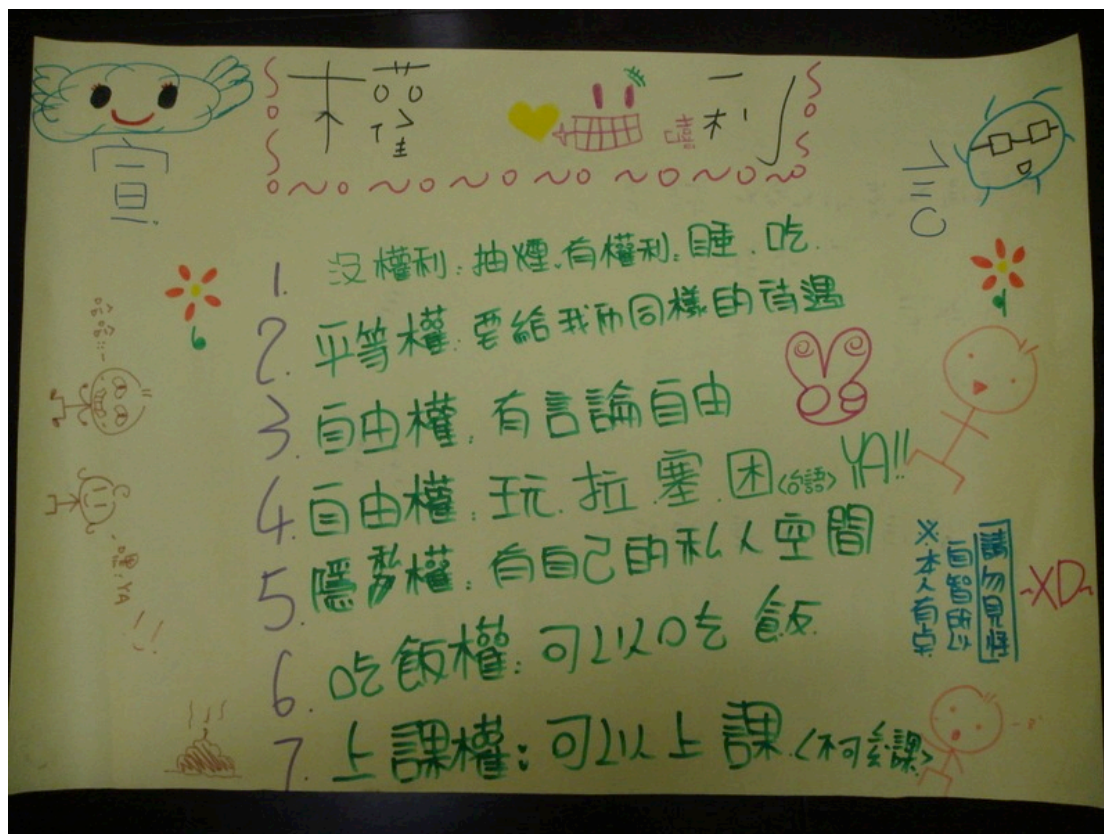 權 利
嘻
宣
言
1. 沒權利：抽煙.有權利：睡.吃.
2. 平等權：要給我們同樣的待遇
3. 自由權：有言論自由
4. 自由權：玩.拉.塞.困<台語>YA!!
5. 隱私權：有自己的私人空間
6. 吃飯權：可以吃飯.
7. 上課權：可以上課.<不可缺課>
※本人有点
自智所以
請勿見怪
~XD~
哈哈
嘿:YA